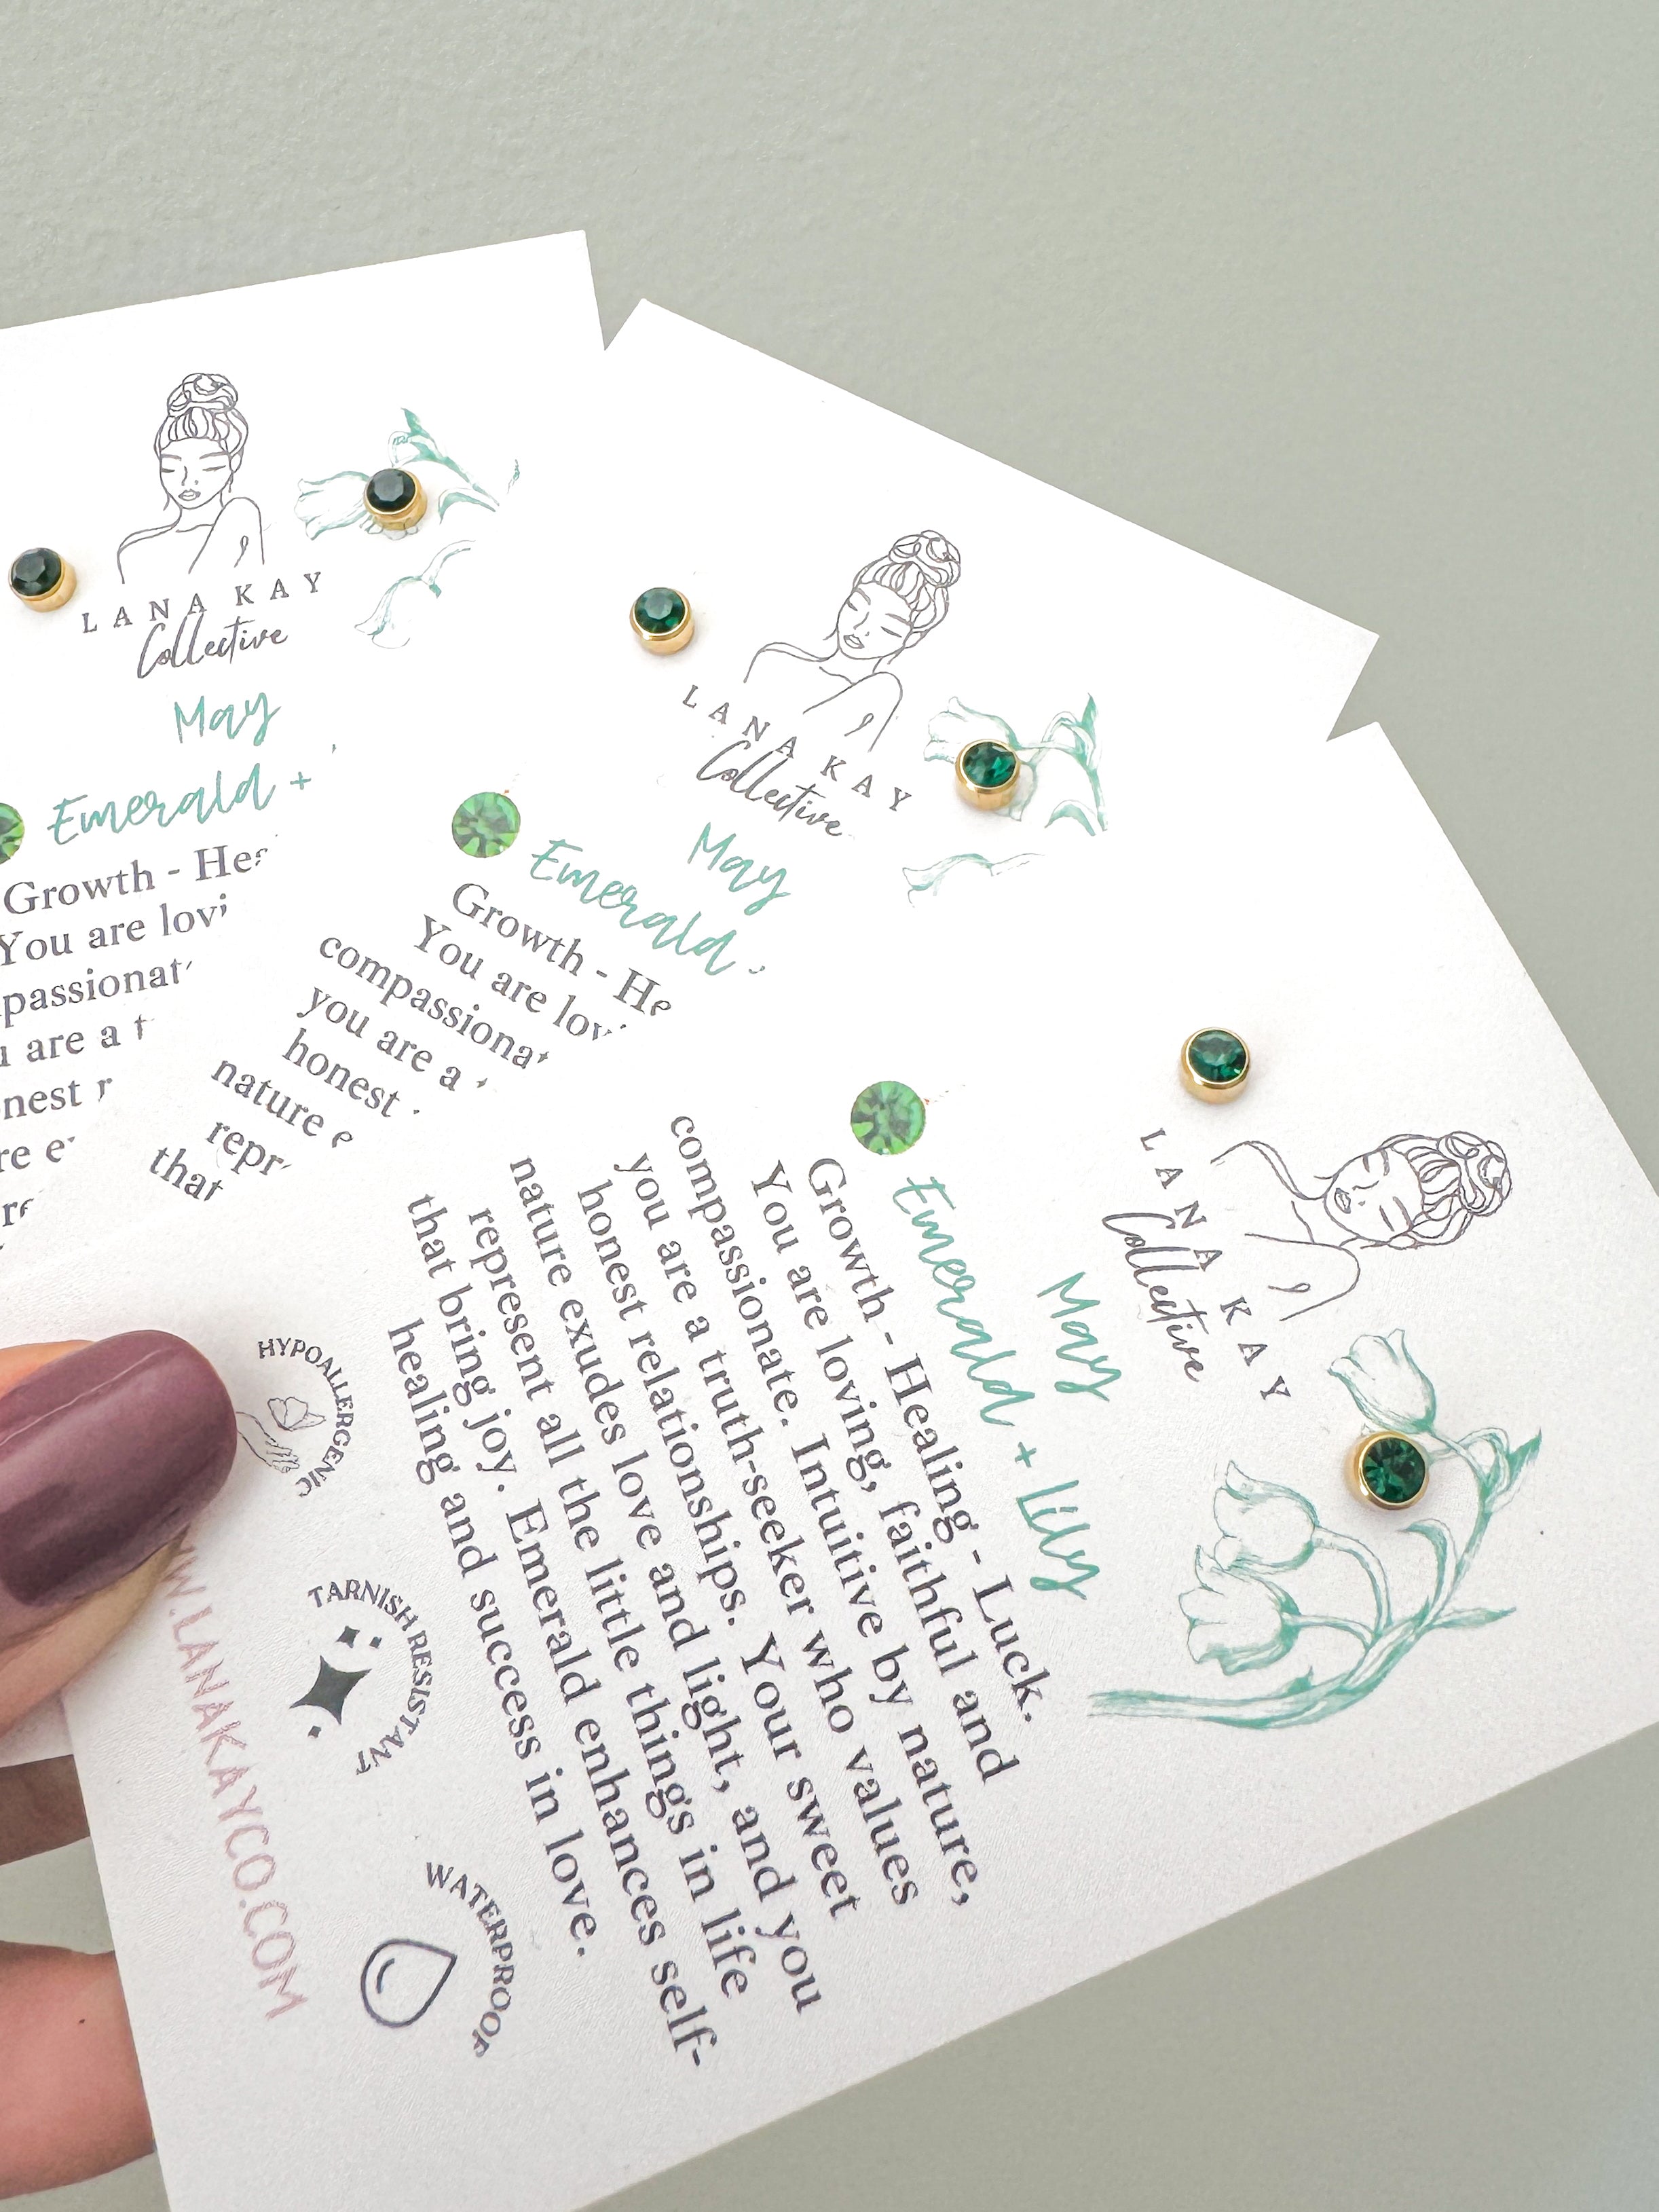 LANA KAY
Collective
May
Emerald +
Growth -
You are
are a
LANA KAY
Collective
May
Emerald
Growth -
You are
you are a
honest
nature
that
LANA KAY
Collective
May
Emerald + Lily
Growth - Healing - Luck.
You are loving, faithful and
compassionate. Intuitive by nature,
you are a truth-seeker who values
honest relationships. Your sweet
nature exudes love and light, and you
represent all the little things in life
that bring joy. Emerald enhances self-
healing and success in love.
HYPOALLERGENIC
TARNISH RESISTANT
WATERPROOF
W.LANAKAYCO.COM